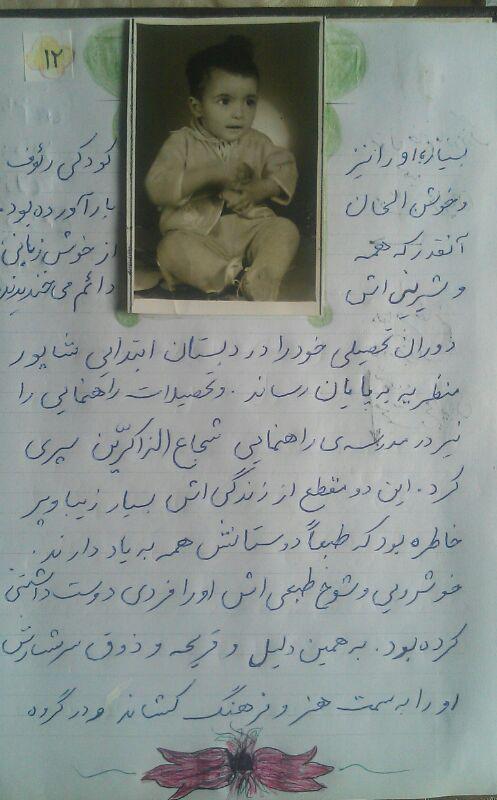 ۱۲
بسیار، او را نیز کودکی رئوف
و خوش الحان بار آورده بود.
آنقدر که همه از خوش زبانی
و شیرینی اش دائم می خندیدند
دوران تحصیلی خود را در دبستان ابتدایی شاپور
منظریه به پایان رساند. و تحصیلات راهنمایی را
نیز در مدرسه ی راهنمایی شجاع الذاکرین سپری
کرد. این دو مقطع از زندگی اش بسیار زیبا و پر
خاطره بود که طبعاً دوستانش همه به یاد دارند.
خوشرویی و شوخ طبعی اش او را فردی دوست داشتنی
کرده بود. به همین دلیل و قریحه و ذوق سرشارش
او را به سمت هنر و فرهنگ کشاند و در گروه